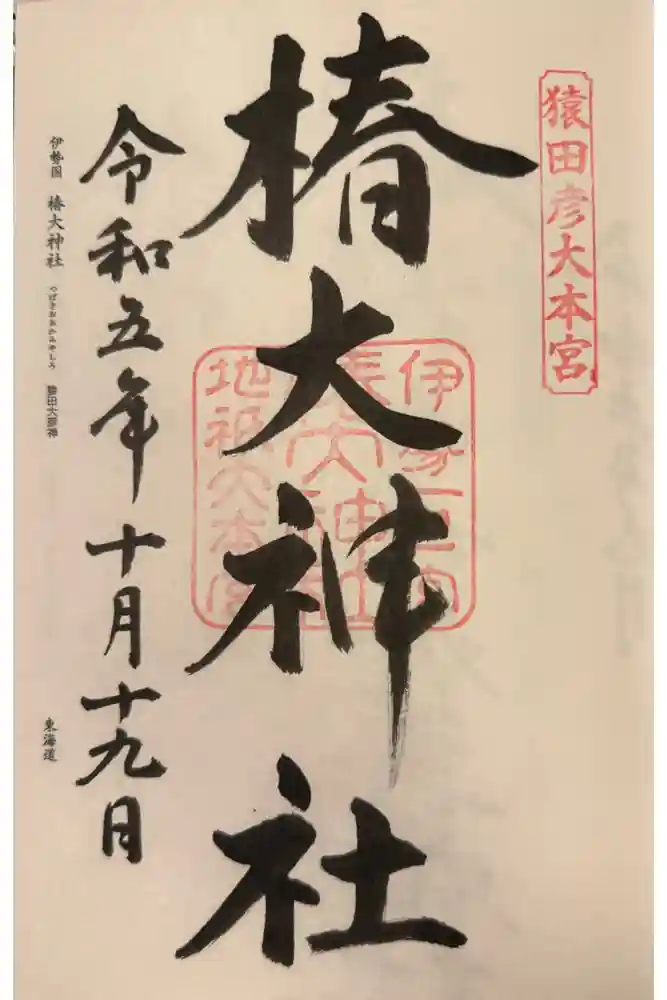 猿田彦大本宮
伊勢一宮
椿大神社
地祇大本宮
椿大神社
令和五年十月十九日
伊勢国 椿大神社 つばきおおかみやしろ 東海道